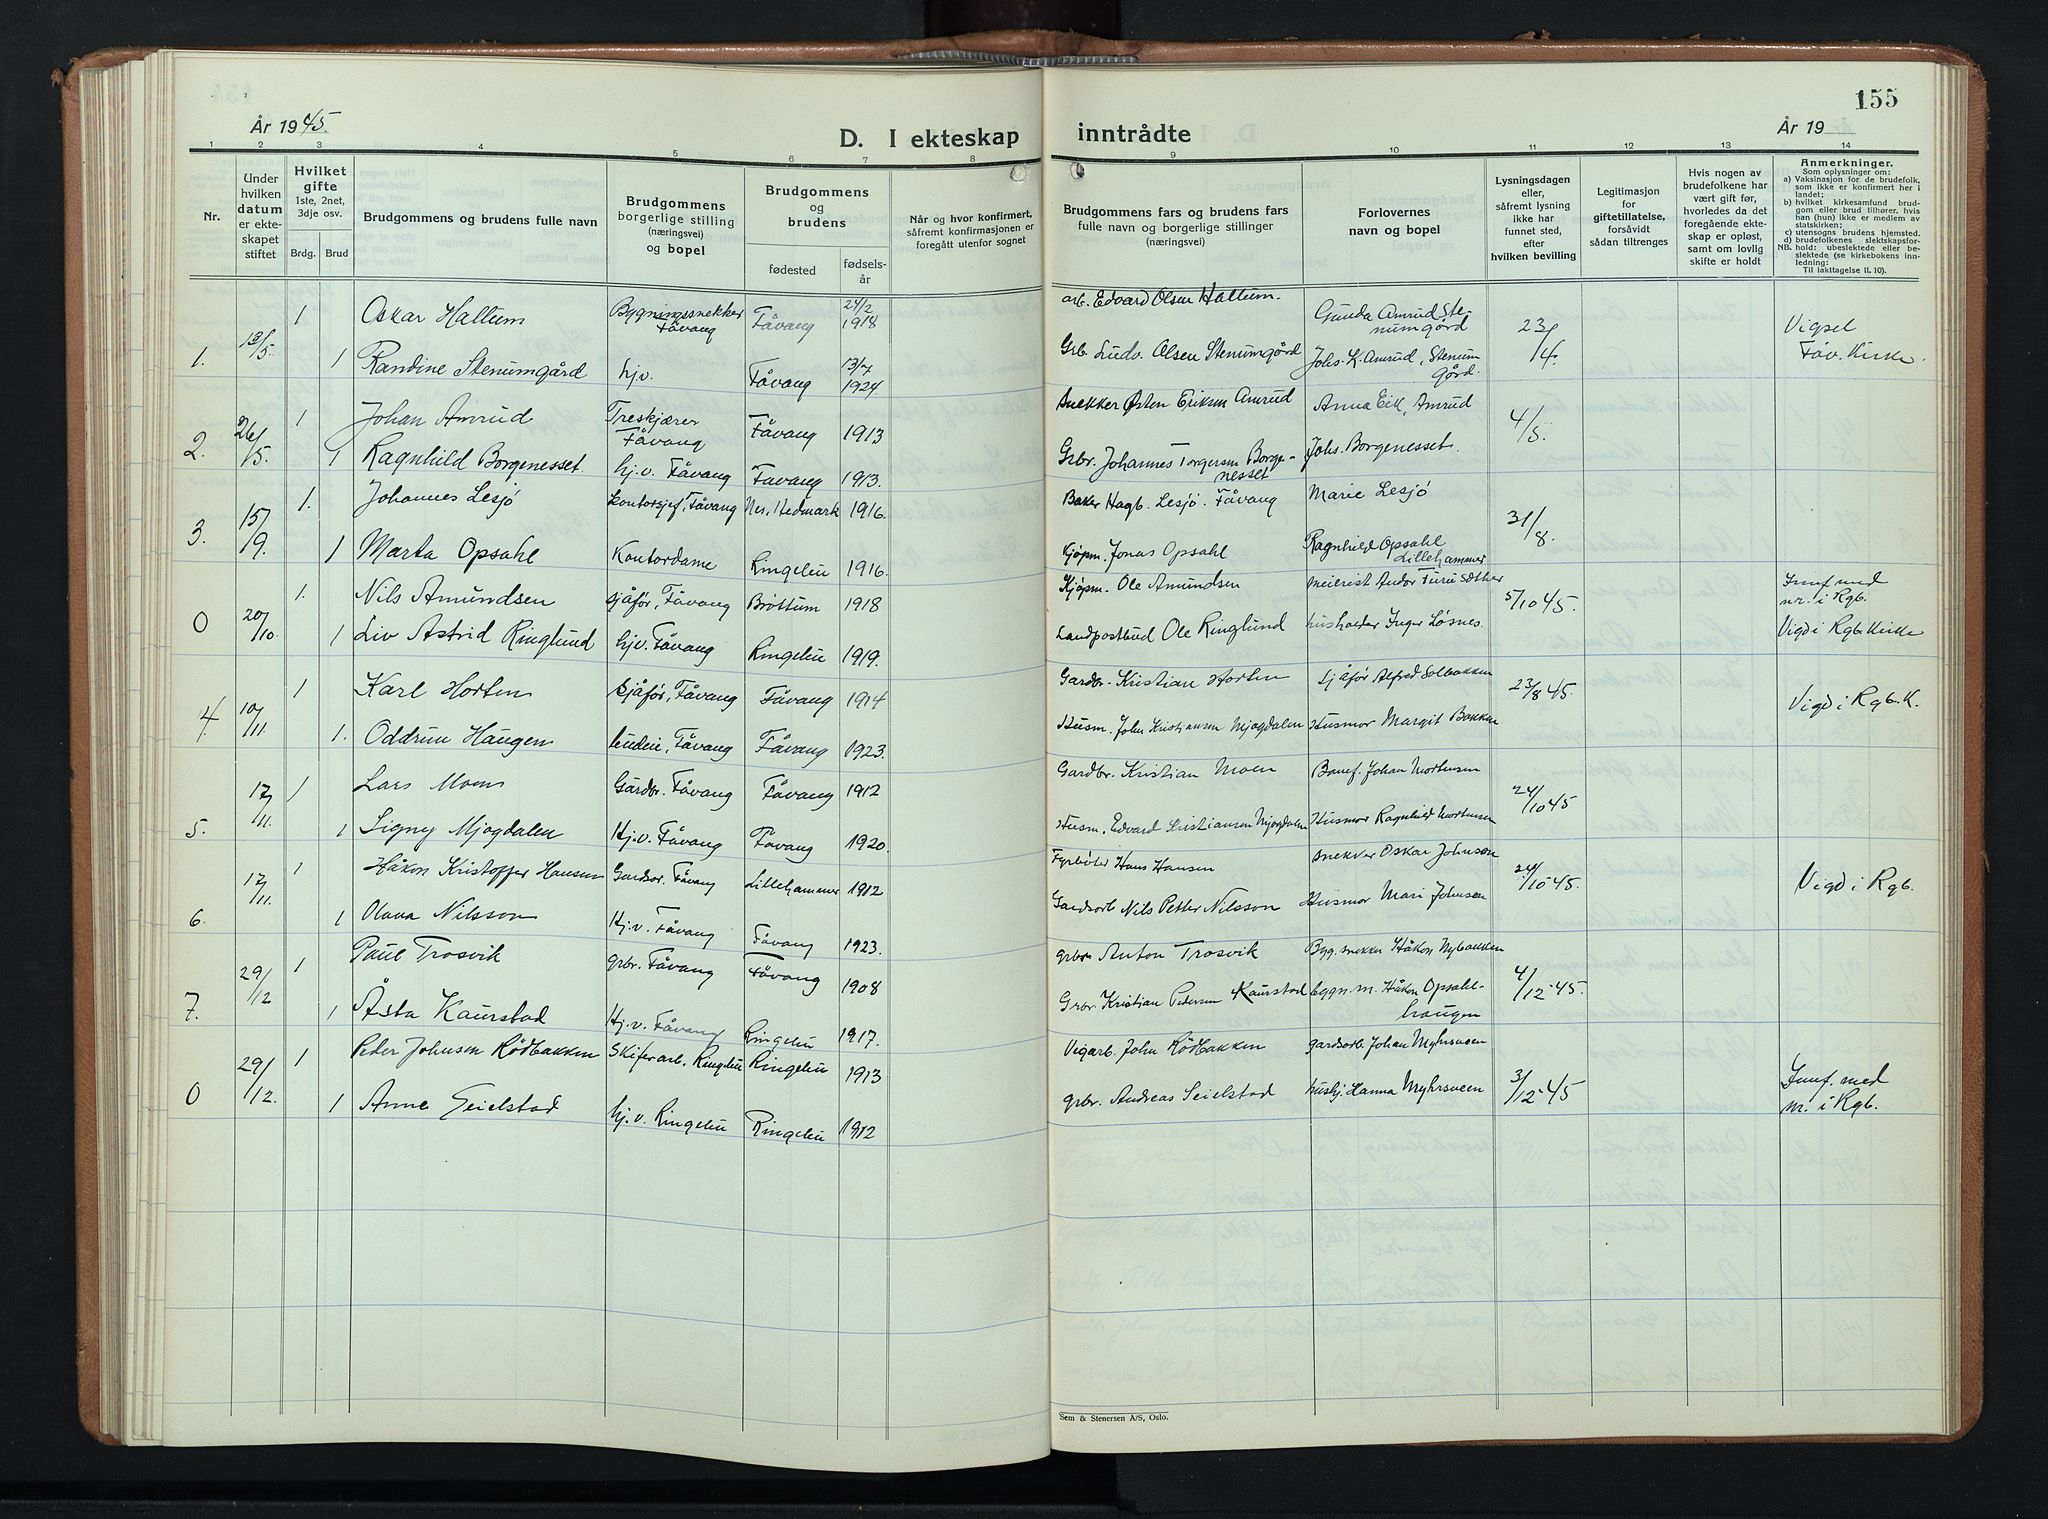 155
År 1945.
D. I ekteskap inntrådte
År 19
1 2 3 4 5 6 7 8 9 10 11 12 13 14
Nr.
Under hvilken datum er ekteskapet stiftet
Hvilket gifte 1ste, 2net, 3dje osv.
Brdg. Brud
Brudgommens og brudens fulle navn
Brudgommens borgerlige stilling (næringsvei) og bopel
Brudgommens og brudens
fødested
fødsels-år
Når og hvor konfirmert, såfremt konfirmasjonen er foregått utenfor sognet
Brudgommens fars og brudens fars fulle navn og borgerlige stillinger (næringsvei)
Forlovernes navn og bopel
Lysningsdagen eller, såfremt lysning ikke har funnet sted, efter hvilken bevilling
Legitimasjon for giftetillatelse, forsåvidt sådan tiltrenges
Hvis nogen av brudefolkene har vært gift før, hvorledes da det foregående ekteskap er opløst, samt om lovlig skifte er holdt
Anmerkninger.
Som oplysninger om:
a) Vaksinasjon for de brudefolk, som ikke er konfirmert her i landet;
b) hvilket kirkesamfund brudgom eller brud tilhører, hvis han (hun) ikke er medlem av statskirken;
c) utensogns brudens hjemsted.
d) brudefolkenes slektskapsforhold: ubeslektede eller beslektede (se kirkebokens innledning:
NB.
Til iakttagelse II. 10).
1 Oskar Hallum Bygningssnekker Fåvang Fåvang 24/2 1918 arb. Edvard Olsen Hallum. Gunda Amrud Stenumgård 23/4 Vigsel Fåv. Kirke.
1. 13/5 1 Randine Stenumgård hj.v. Fåvang 13/7 1924 Grb. Ludv. Olsen Stenumgård Johs. K. Amrud, Stenumgård.
1 Johan Amrud Treskjærer Fåvang Fåvang 1913 Snekker Østen Eriksen Amrud Anna Eik, Amrud 4/5.
2. 26/5. 1 Ragnhild Borgenesset hj.v. Fåvang Fåvang 1913. Grbr. Johannes Torgersen Borgenesset Johs. Borgenesset.
1. Johannes Lesjö Kontorsjef, Fåvang Nes, Hedmark 1916. Baker Hagb. Lesjö. Fåvang Marie Lesjö 31/8.
3. 15/9. 1 Marta Opsahl Kontordame Ringebu 1916. Kjøpm. Jonas Opsahl Ragnhild Opsahl Lillehammer
1. Nils Amundsen sjåför, Fåvang Bröttum 1918 Kjøpm. Ole Amundsen Meierist Andor Furusether 5/10 45. Innf. med nr. i Rgb.
0 20/10. 1 Liv Astrid Ringlund hj.v. Fåvang Ringebu 1919. Landpostbud Ole Ringlund husholder Inger Løsnes. Vigd i Rgb. Kirke
1 Karl Horten sjåför, Fåvang Fåvang 1914 Gardbr. Kristian Horten sjåför Alfred Solbakken 23/8 45. Vigd i Rgb. K.
4. 10/11. 1. Oddrun Haugen budeie, Fåvang Fåvang 1923. Husm. John Kristiansen Mjogdalen Husmor Margit Bakken
1 Lars Moen Gårdbr. Fåvang Fåvang 1912 Gardbr. Kristian Moen Banef. Johan Mortensen 24/10 45
5. 17/11. 1 Signy Mjogdalen Hj.v. Fåvang Fåvang 1920. Husm. Edvard Kristiansen Mjogdalen Husmor Ragnhild Mortensen
1 Håkon Kristoffer Hansen Gardsar. Fåvang Lillehammer 1912 Fyrböter Hans Hansen snekker Oskar Johnsen 24/10-45. Vigd i Rgb.
6. 17/11. 1 Olava Nilsson Hj.v. Fåvang Fåvang 1923. Gardsarb Nils Petter Nilsson Husmor Mari Johnsen
1 Paul Trosvik grbr. Fåvang Fåvang 1908 grbr. Anton Trosvik Bygg. snekker Håkon Nybakken 4/12-45.
7. 29/12 1 Åsta Kaurstad Hj.v. Fåvang Ringebu 1917. Grbr Kristian Pedersen Kaurstad bygn. m. Håkon Opsahlhaugen
1 Peder Johnsen Rödbakken Skiferarb. Ringebu Ringebu 1913 Vegarb. John Rödbakken gardsarb. Johan Myhrsveen 3/12-45 Innf. med nr. i Rgb.
0 29/12. 1 Anne Seielstad hj.v. Ringebu Ringebu 1912 grbr. Andreas Seielstad hushj. Hanna Myhrsveen
Sem & Stenersen A/S, Oslo.